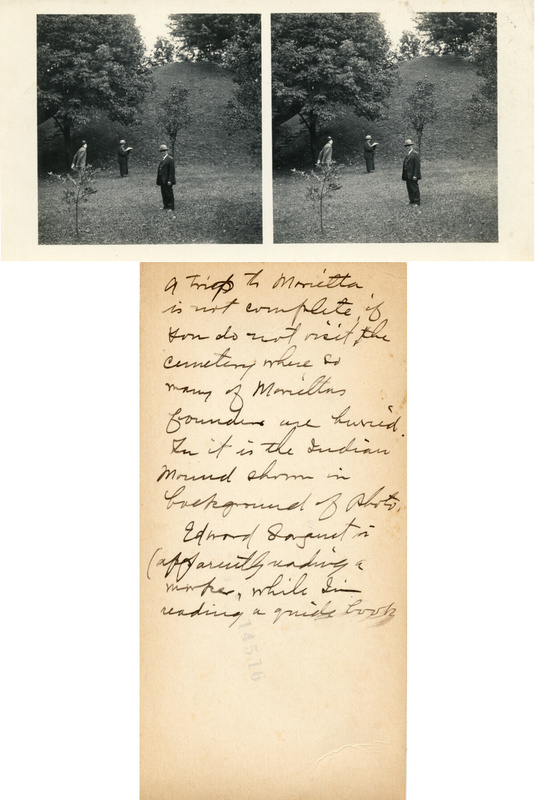 A trip to Marietta
is not complete, if
you do not visit the
cemetery where so
many of Mariettas
founders are buried.
In it is the Indian
Mound shown in
background of photo.
Edward is
(apparently reading a
marker, while I'm
reading a guide book
14516